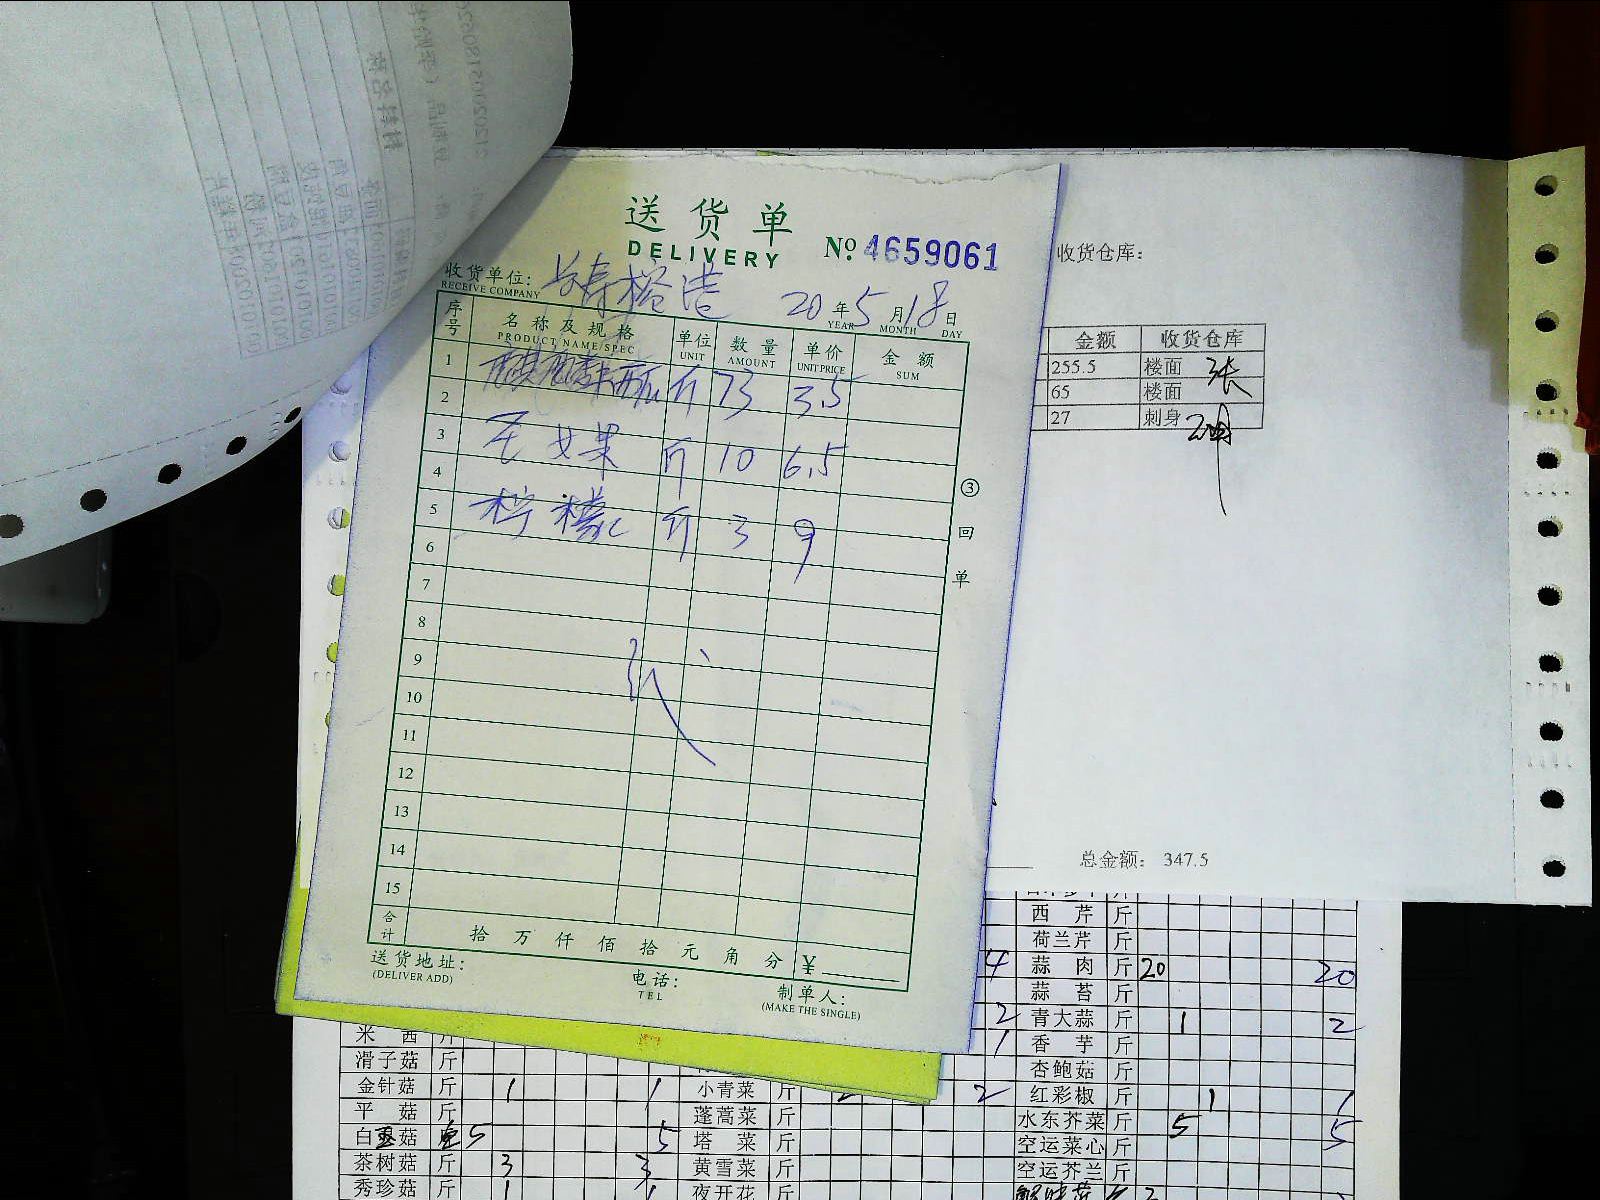 送货单
DELIVERY
№ 4659061
收货单位：长寿榕港 20年5月18日
RECEIVE COMPANY YEAR MONTH DAY
序号 名称及规格 单位 数量 单价 金额
PRODUCT NAME/SPEC UNIT AMOUNT UNIT PRICE SUM
1 麒麟西瓜 斤 73 3.5
2
3 圣女果 斤 10 6.5
4
5 柠檬 斤 3 9
6
7
8
9
10
11
12
13
14
15
合计 拾万仟佰拾元角分 ¥
送货地址：
(DELIVER ADD)
电话：
TEL
制单人：
(MAKE THE SINGLE)
③回单
收货仓库：
金额 收货仓库
255.5 楼面 张
65 楼面
27 刺身
总金额： 347.5
西芹 斤
荷兰芹 斤
4 蒜肉 斤 20 20
蒜苔 斤
2 青大蒜 斤 1 2
1 香芋 斤
杏鲍菇 斤
红彩椒 斤 1 1
水东芥菜 斤 5 5
空运菜心 斤
空运芥兰 斤
滑子菇 斤
金针菇 斤 1 1
平菇 斤
茶树菇 斤 3 3
秀珍菇 斤 1 1
小青菜 斤 2 2
蓬蒿菜 斤
塔菜 斤
黄雪菜 斤
夜开花 斤